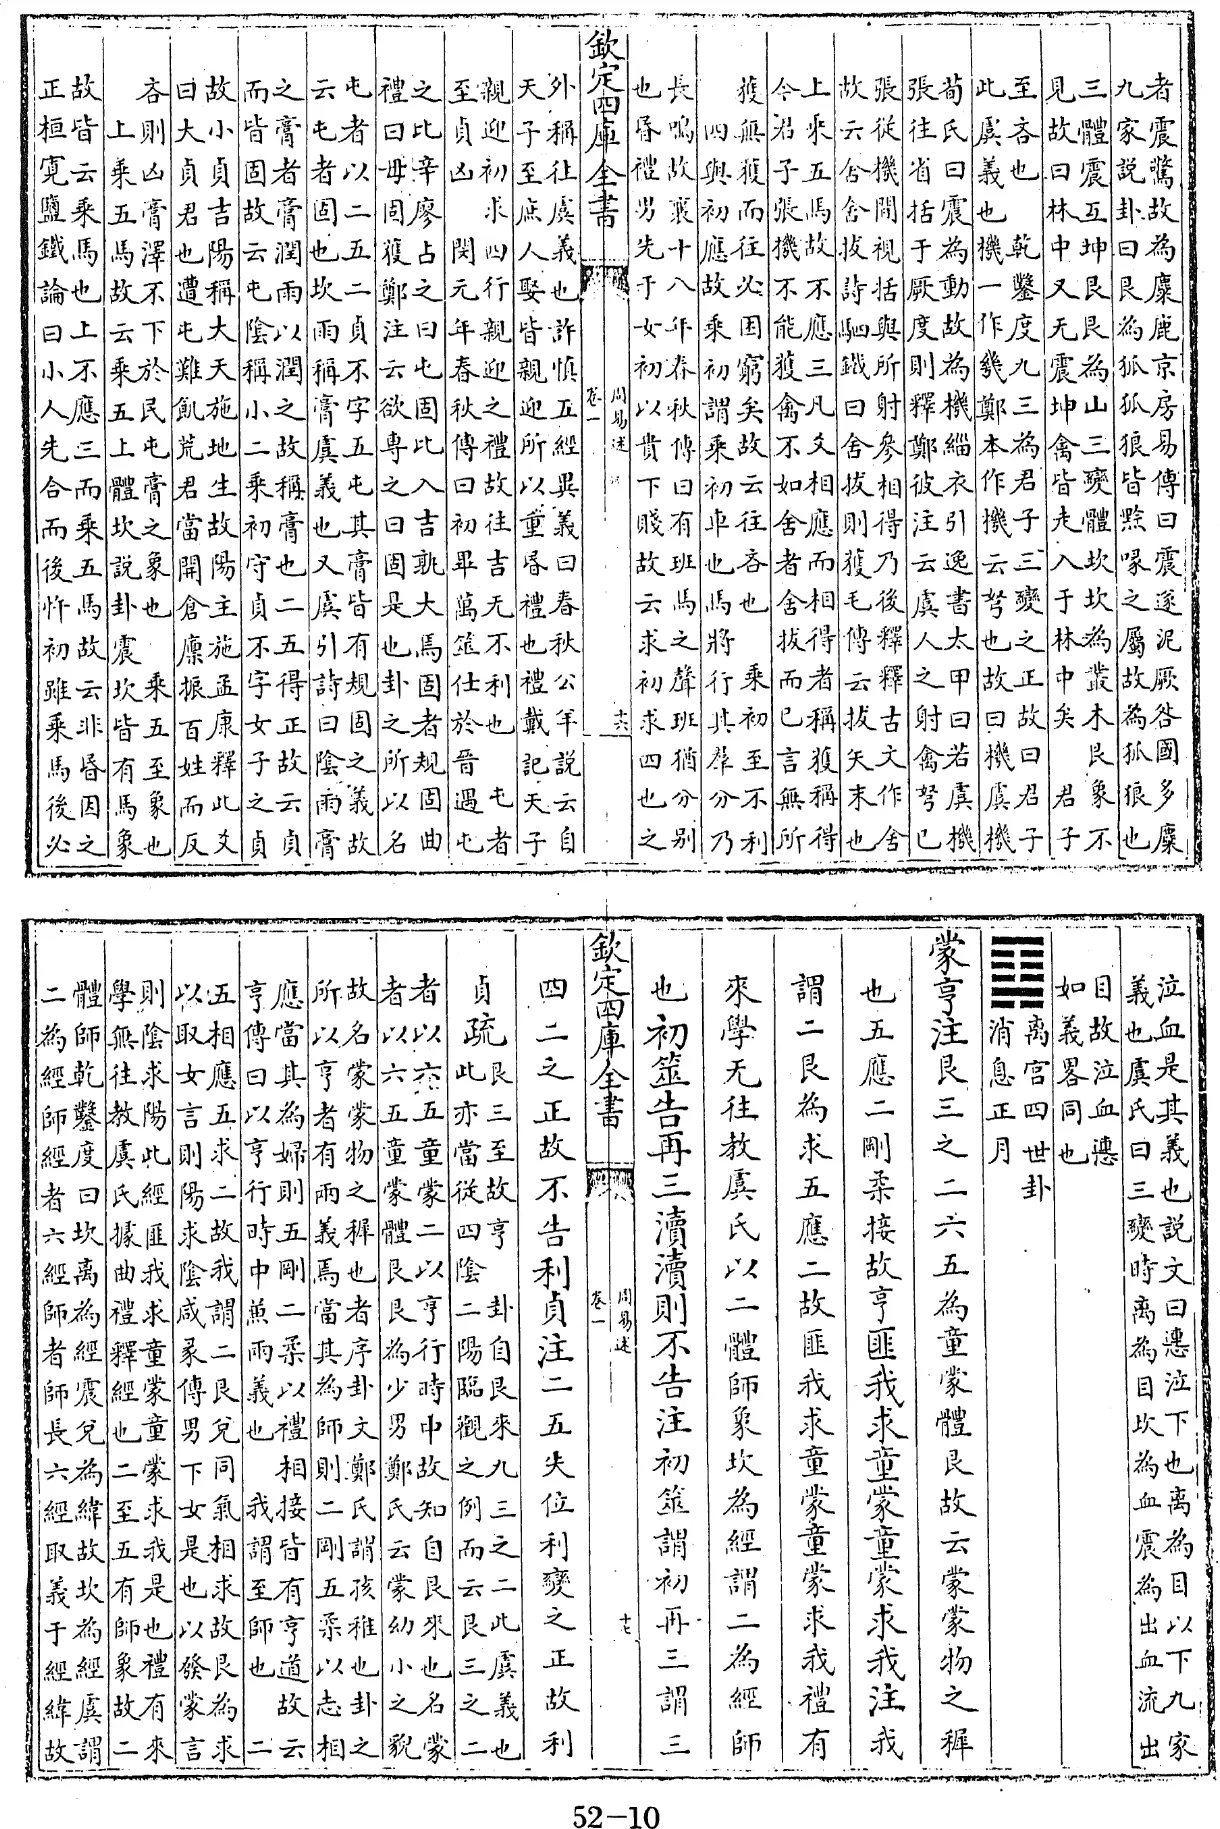 者震驚故為麋鹿京房易傳曰震遂泥厥咎國多麋
九家說卦曰艮為狐狐狼皆黔喙之屬故為狐狼也
三體震互坤艮為山三變體坎坎為叢木艮象不
見故曰林中又无震坤禽皆走入于林中矣 君子
至吝也 乾鑿度九三為君子三變之正故曰君子
此虞義也機一作幾鄭本作機云弩也故曰機虞機
荀氏曰震為動故為機緇衣引逸書太甲曰若虞機
張往省括于厥度則釋鄭彼注云虞人之射禽弩已
張從機間視括與所射參相得乃後釋釋古文作舍
故云舍舍拔詩駟鐵曰舍拔則獲毛傳云拔矢末也
上乘五馬故不應三凡爻相應而相得者稱獲稱得
今君子張機不能獲禽不如舍者舍拔而已言無所
獲無獲而往必困窮矣故云往吝也 乘初至不利
四與初應故乘初謂乘初車也馬將行其羣分乃
長鳴故襄十八年春秋傳曰有班馬之聲班猶分别
也昏禮男先于女初以貴下賤故云求初求四也之
欽定四庫全書 周易述 卷一 十六
外稱往虞義也許慎五經異義曰春秋公羊說云自
天子至庶人娶皆親迎所以重昏禮也禮戴記天子
親迎初求四行親迎之禮故往吉无不利也 屯者
至貞凶 閔元年春秋傳曰初畢萬筮仕於晉遇屯
之比辛廖占之曰屯固比入吉孰大焉固者規固曲
禮曰毋固獲鄭注云欲專之曰固是也卦之所以名
屯者以二五二貞不字五屯其膏皆有規固之義故
云屯者固也坎雨稱膏虞義也又虞引詩曰陰雨膏
之膏者膏潤雨以潤之故稱膏也二五得正故云貞
而皆固故云屯陰稱小二乘初守貞不字女子之貞
故小貞吉陽稱大天施地生故陽主施孟康釋此爻
曰大貞君也遭屯難飢荒君當開倉廩振百姓而反
吝則凶膏澤不下於民屯膏之象也 乘五至象也
上乘五馬故云乘五上體坎說卦震坎皆有馬象
故皆云乘馬也上不應三而乘五馬故云非昏因之
正桓寬鹽鐵論曰小人先合而後忤初雖乘馬後必
泣血是其義也說文曰㦁泣下也离為目以下九家
義也虞氏曰三變時离為目坎為血震為出血流出
目故泣血㦁
如義畧同也
䷃ 离宮四世卦
消息正月
蒙亨注艮三之二六五為童蒙體艮故云蒙蒙物之穉
也五應二剛柔接故亨匪我求童蒙童蒙求我注我
謂二艮為求五應二故匪我求童蒙童蒙求我禮有
來學无往教虞氏以二體師象坎為經謂二為經師
也初筮告再三瀆瀆則不告注初筮謂初再三謂三
欽定四庫全書 周易述 卷一 十七
四二之正故不告利貞注二五失位利變之正故利
貞疏艮三至故亨 卦自艮來九三之二此虞義也
此亦當從四陰二陽臨觀之例而云艮三之二
者以六五童蒙二以亨行時中故知自艮來也名蒙
者以六五童蒙體艮艮為少男鄭氏云蒙幼小之貌
故名蒙蒙物之穉也者序卦文鄭氏謂孩稚也卦之
所以亨者有兩義焉當其為師則二剛五柔以志相
應當其為婦則五剛二柔以禮相接皆有亨道故云
亨傳曰以亨行時中兼兩義也 我謂至師也 二
五相應五求二故我謂二艮兌同氣相求故艮為求
以取女言則陽求陰咸彖傳男下女是也以發蒙言
則陰求陽此經匪我求童蒙童蒙求我是也禮有來
學無往教虞氏據曲禮釋經也二至五有師象故二
體師乾鑿度曰坎离為經震兌為緯故坎為經虞謂
二為經師經者六經師者師長六經取義于經緯故
52-10